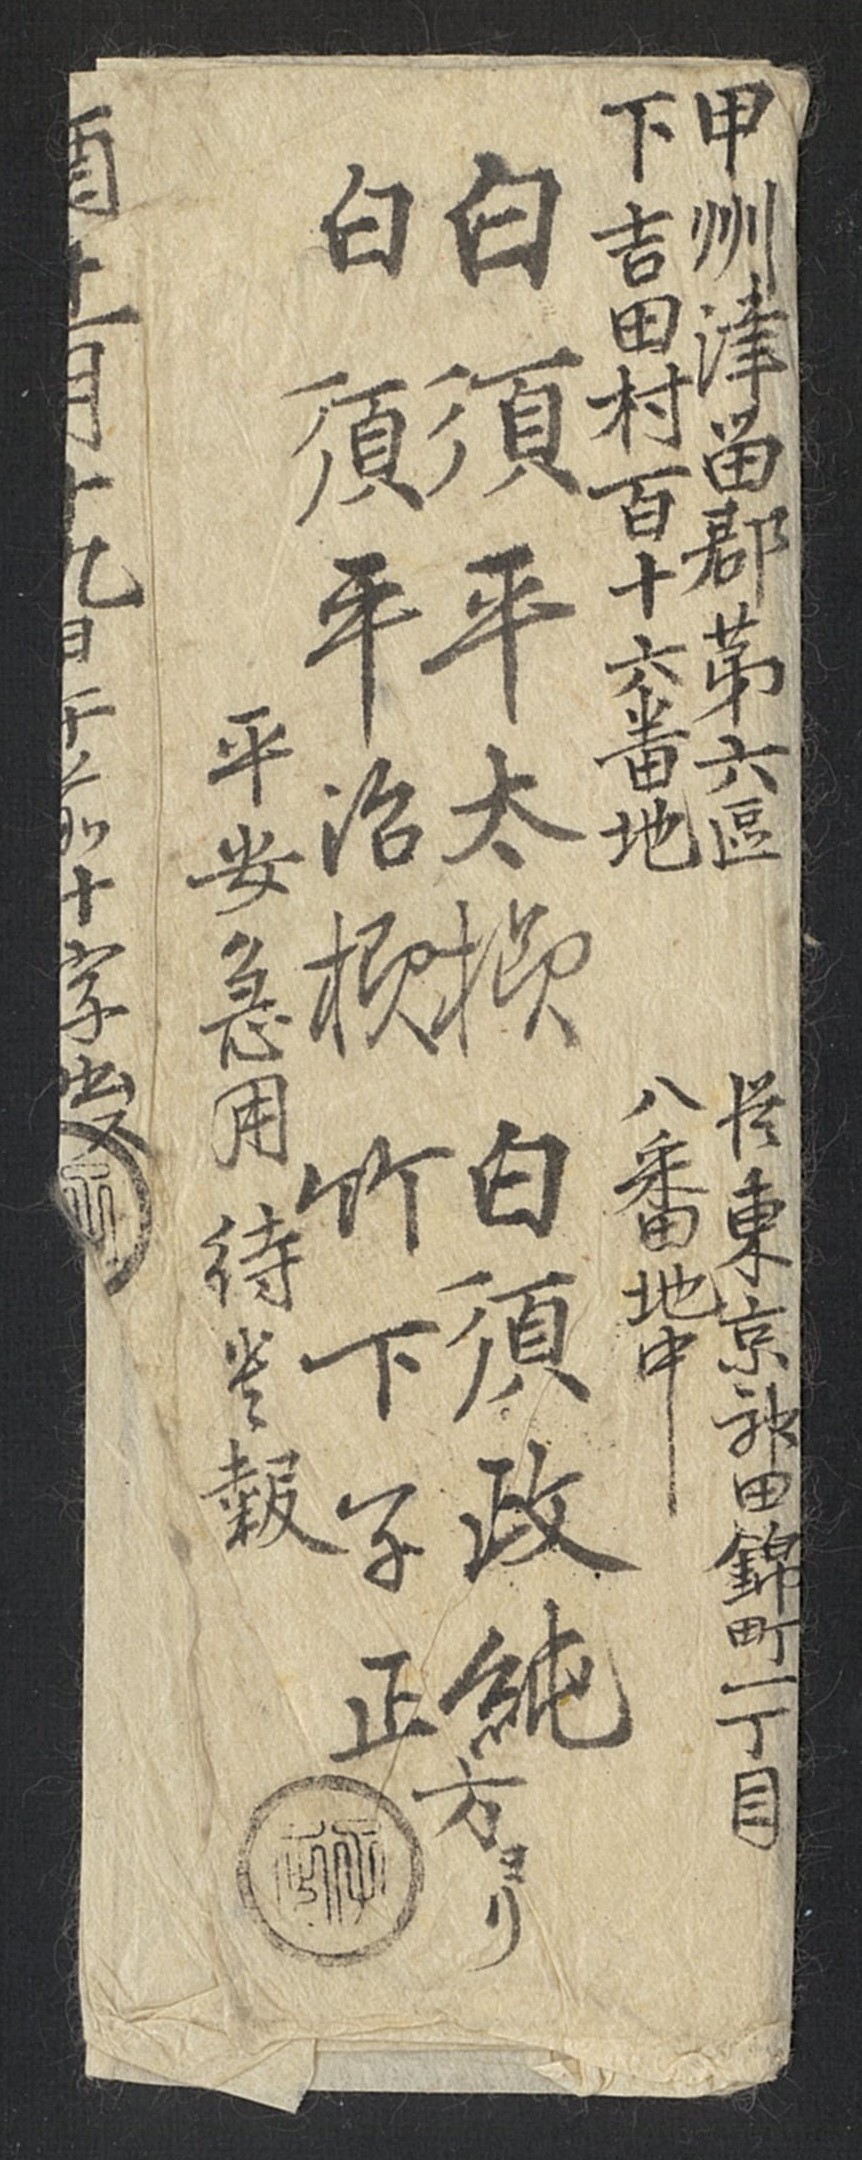 甲州津留郡第六區
下吉田村百十六番地
白須平太様
白須平治様
従東京神田錦町一丁目
八番地中
白須政純方より
竹下子正
平安急用待貴報
酉十一月十九日午前十字出